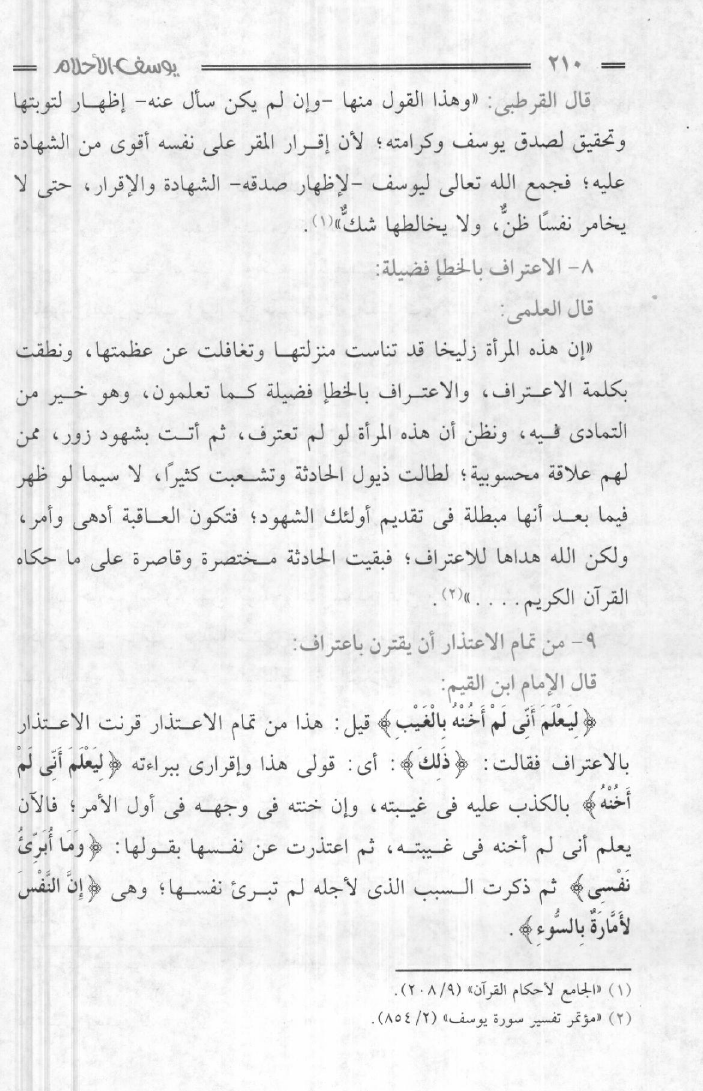 ٢١٠ يوسف الأحلام
قال القرطبى: «وهذا القول منها -وإن لم يكن سأل عنه- إظهار لتوبتها
وتحقيق لصدق يوسف وكرامته؛ لأن إقرار المقر على نفسه أقوى من الشهادة
عليه؛ فجمع الله تعالى ليوسف -لإظهار صدقه- الشهادة والإقرار، حتى لا
يخامر نفسًا ظنٌّ، ولا يخالطها شكٌّ»(١).
٨- الاعتراف بالخطإ فضيلة:
قال العلمى:
«إن هذه المرأة زليخا قد تناست منزلتها وتغافلت عن عظمتها، ونطقت
بكلمة الاعتراف، والاعتراف بالخطإ فضيلة كما تعلمون، وهو خير من
التمادى فيه، ونظن أن هذه المرأة لو لم تعترف، ثم أتت بشهود زور، ممن
لهم علاقة محسوبية؛ لطالت ذيول الحادثة وتشعبت كثيرًا، لا سيما لو ظهر
فيما بعد أنها مبطلة فى تقديم أولئك الشهود؛ فتكون العاقبة أدهى وأمر،
ولكن الله هداها للاعتراف؛ فبقيت الحادثة مختصرة وقاصرة على ما حكاه
القرآن الكريم....»(٢).
٩- من تمام الاعتذار أن يقترن باعتراف:
قال الإمام ابن القيم:
﴿لِيَعْلَمَ أَنِّى لَمْ أَخُنْهُ بِالْغَيْبِ﴾ قيل: هذا من تمام الاعتذار قرنت الاعتذار
بالاعتراف فقالت: ﴿ذَلِكَ﴾: أى: قولى هذا وإقرارى ببراءته ﴿لِيَعْلَمَ أَنِّى لَمْ
أَخُنْهُ﴾ بالكذب عليه فى غيبته، وإن خنته فى وجهه فى أول الأمر؛ فالآن
يعلم أنى لم أخنه فى غيبته، ثم اعتذرت عن نفسها بقولها: ﴿وَمَا أُبَرِّئُ
نَفْسِى﴾ ثم ذكرت السبب الذى لأجله لم تبرئ نفسها؛ وهى ﴿إِنَّ النَّفْسَ
لأَمَّارَةٌ بِالسُّوءِ﴾.
(١) «الجامع لأحكام القرآن» (٢٠٨/٩).
(٢) «مؤتمر تفسير سورة يوسف» (٨٥٤/٢).